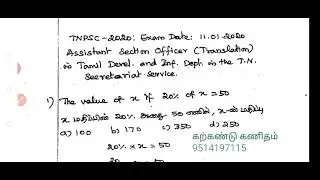 TNPSC-2020: Exam Date: 11.01.2020
Assistant Section Officer (Translation)
in Tamil Devel. and Inf. Deph in the T.N.
Secretariat Service.
1) The value of x if 20% of x = 50
x மதிப்பின் 20% ஆனது 50 எனில், x-ன் மதிப்பு
a) 100 b) 170 c) 350 d) 250
20% x x = 50
கற்கண்டு கணிதம்
9514197115
20 = 50